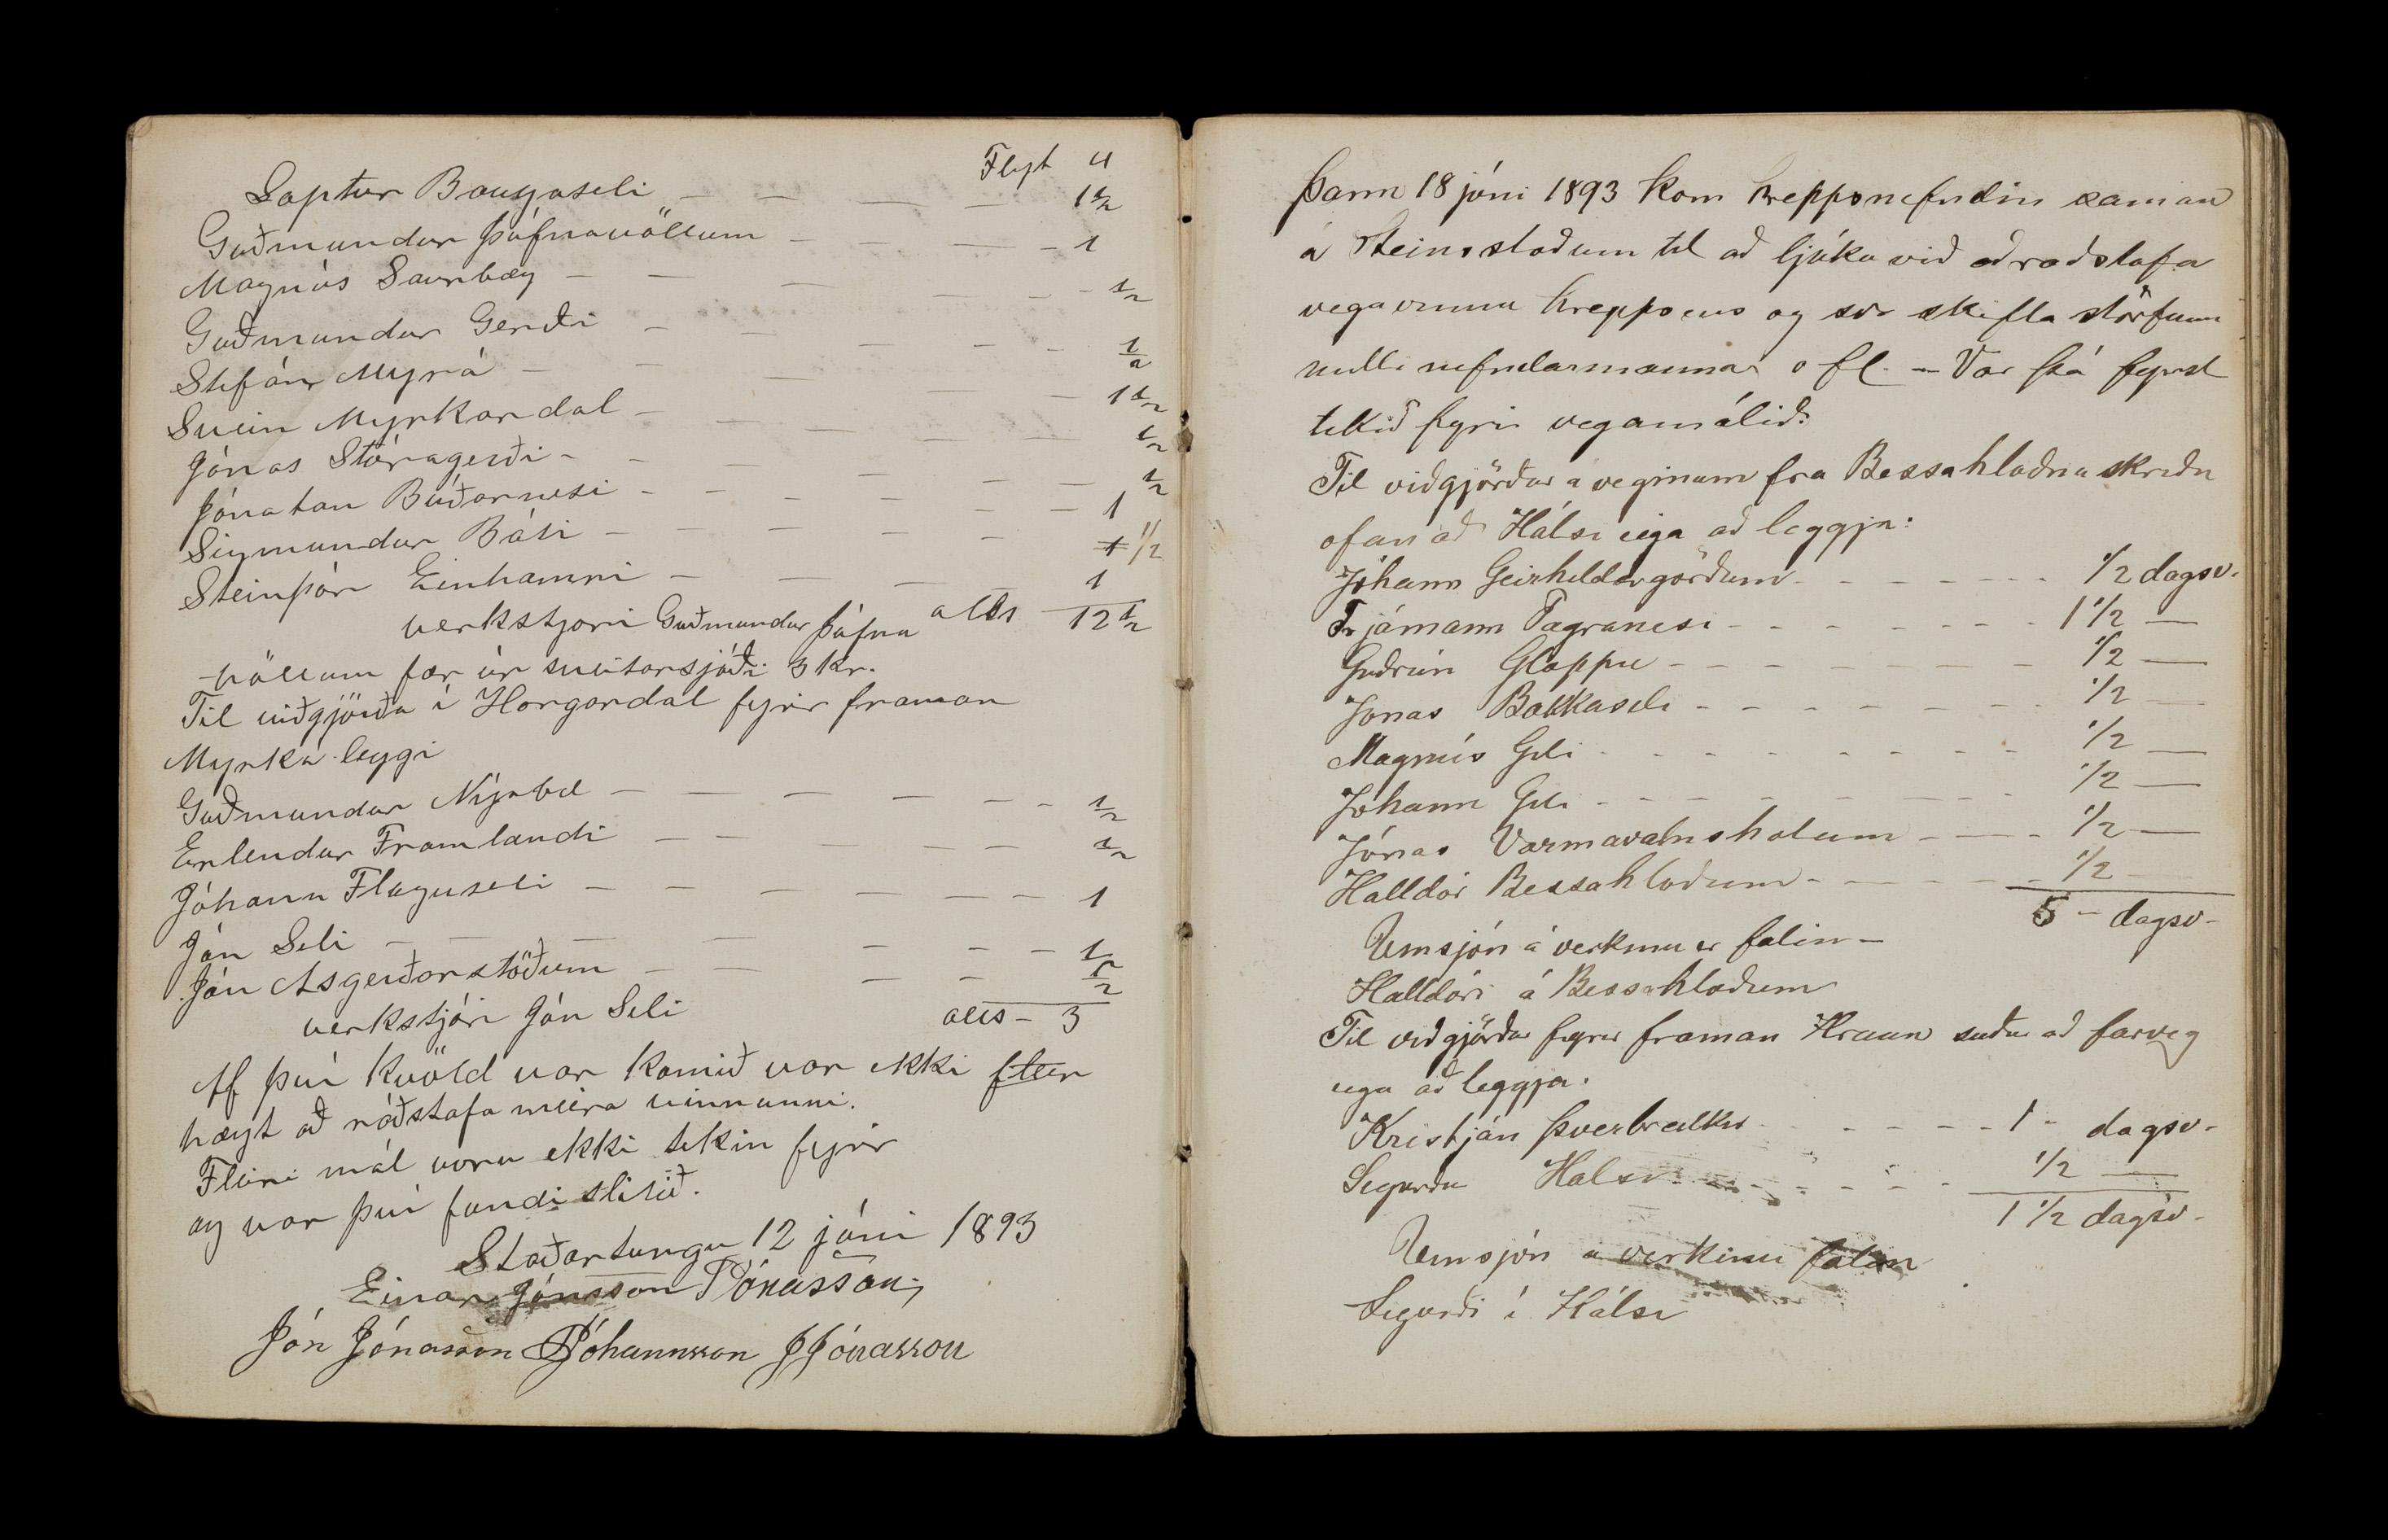 Flyt 4
Loptur Baugaseli — — — — 1 1/2
Guðmundur Þúfnavöllum — — — — 1
Magnús Saurbæ — — — — — — 1/2
Guðmundur Gerði — — — — — 1/2
Stefán Myrá — — — — — 1 1/2
Svein Myrkardal — — — — — 1/2
Jónas Stóragerði — — — — — 1/2
Jónatan Búðarnesi — — — — — — 1
Sigmundur Bási — — — — — 1 1/2
Steinþór Einhamri — — — — 1
verkstjori Guðmundur Þúfna alls 12 1/2
-völlum fær úr sveitarsjóði 3 kr.
Til viðgjörða í Horgardal fyrir framan
Myrká leygi
Guðmundur Nýabæ — — — — — — 1/2
Erlendur Framlandi — — — — — 1/2
Jóhann Flöguseli — — — — — — 1
Jón Seli — — — — — — — 1/2
Jón Asgerðarstöðum — — — — 1/2
verkstjóri Jón Seli alls — 3
Af því kvöld var komið var ekki fleir
hægt að ráðstafa meira vinnunni.
Fleiri mál voru ekki tekin fyrir
og var því fundi slitið.
Staðartungu 12 júni 1893
Einar Jónsson Jónasson
Jón Jónasson Jóhannsson JJónasson
Þann 18 júni 1893 kom hreppsnefndin saman
á Steinsstoðum til að ljúka við að raðstafa
vegavinnu hreppsins og svo skifta störfum
milli nefndarmanna o fl. — Var þá fyrst
tekið fyrir vegamálið:
Til viðgjörðar a veginum fra Bessahlaðna skriðu
ofan að Hálsi eiga að leggja:
Jóhann Geirhildargörðum - - - - - - 1/2 dagsv.
Frjámann Fagranesi - - - - - - - 1 1/2 —
Guðrún Gloppu - - - - - - - 1/2 —
Jonas Bakkaseli - - - - - - - 1/2 —
Magnús Gili - - - - - - - 1/2 —
Jóhann Gili - - - - - - - 1/2 —
Jónas Varmavatnsholum - - - - 1/2 —
Halldór Bessahloðum - - - - - 1/2 —
5 - dagsv-
Umsjón á verkinu er falin —
Halldóri á Bessahloðum
Til viðgjörðar fyrir framan Hraun suður að farveg
eiga að leggja.
Kristján Þverbrekku - - - - - - 1 - dagsv-
Sigurður Halsi - - - - - - 1/2 —
1 1/2 dagsv-
Umsjón a verkinu falin
Sigurði í Hálsi